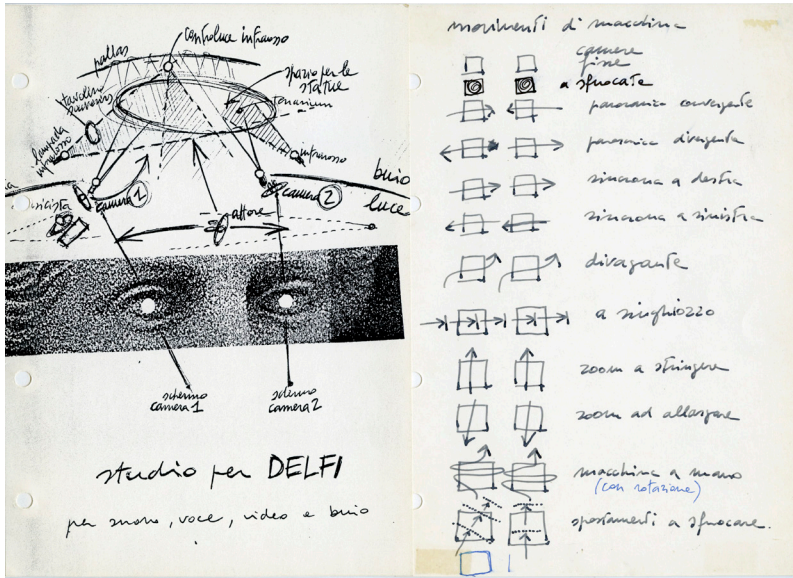 controluce infrarosso
pallas
spazio per le
statue
tavolino
lampada
infrarosso
infrarosso
camera 1
camera 2
buio
luce
attore
schermo
camera 1
schermo
camera 2
studio per DELFI
per suono, voce, video e buio
movimenti di macchina
camere
fisse
a sfuocate
panoramica convergente
panoramica divergente
sincrona a destra
sincrona a sinistra
divagante
a singhiozzo
zoom a stringere
zoom ad allargare
macchina a mano
(con rotazione)
spostamenti a sfuocare.